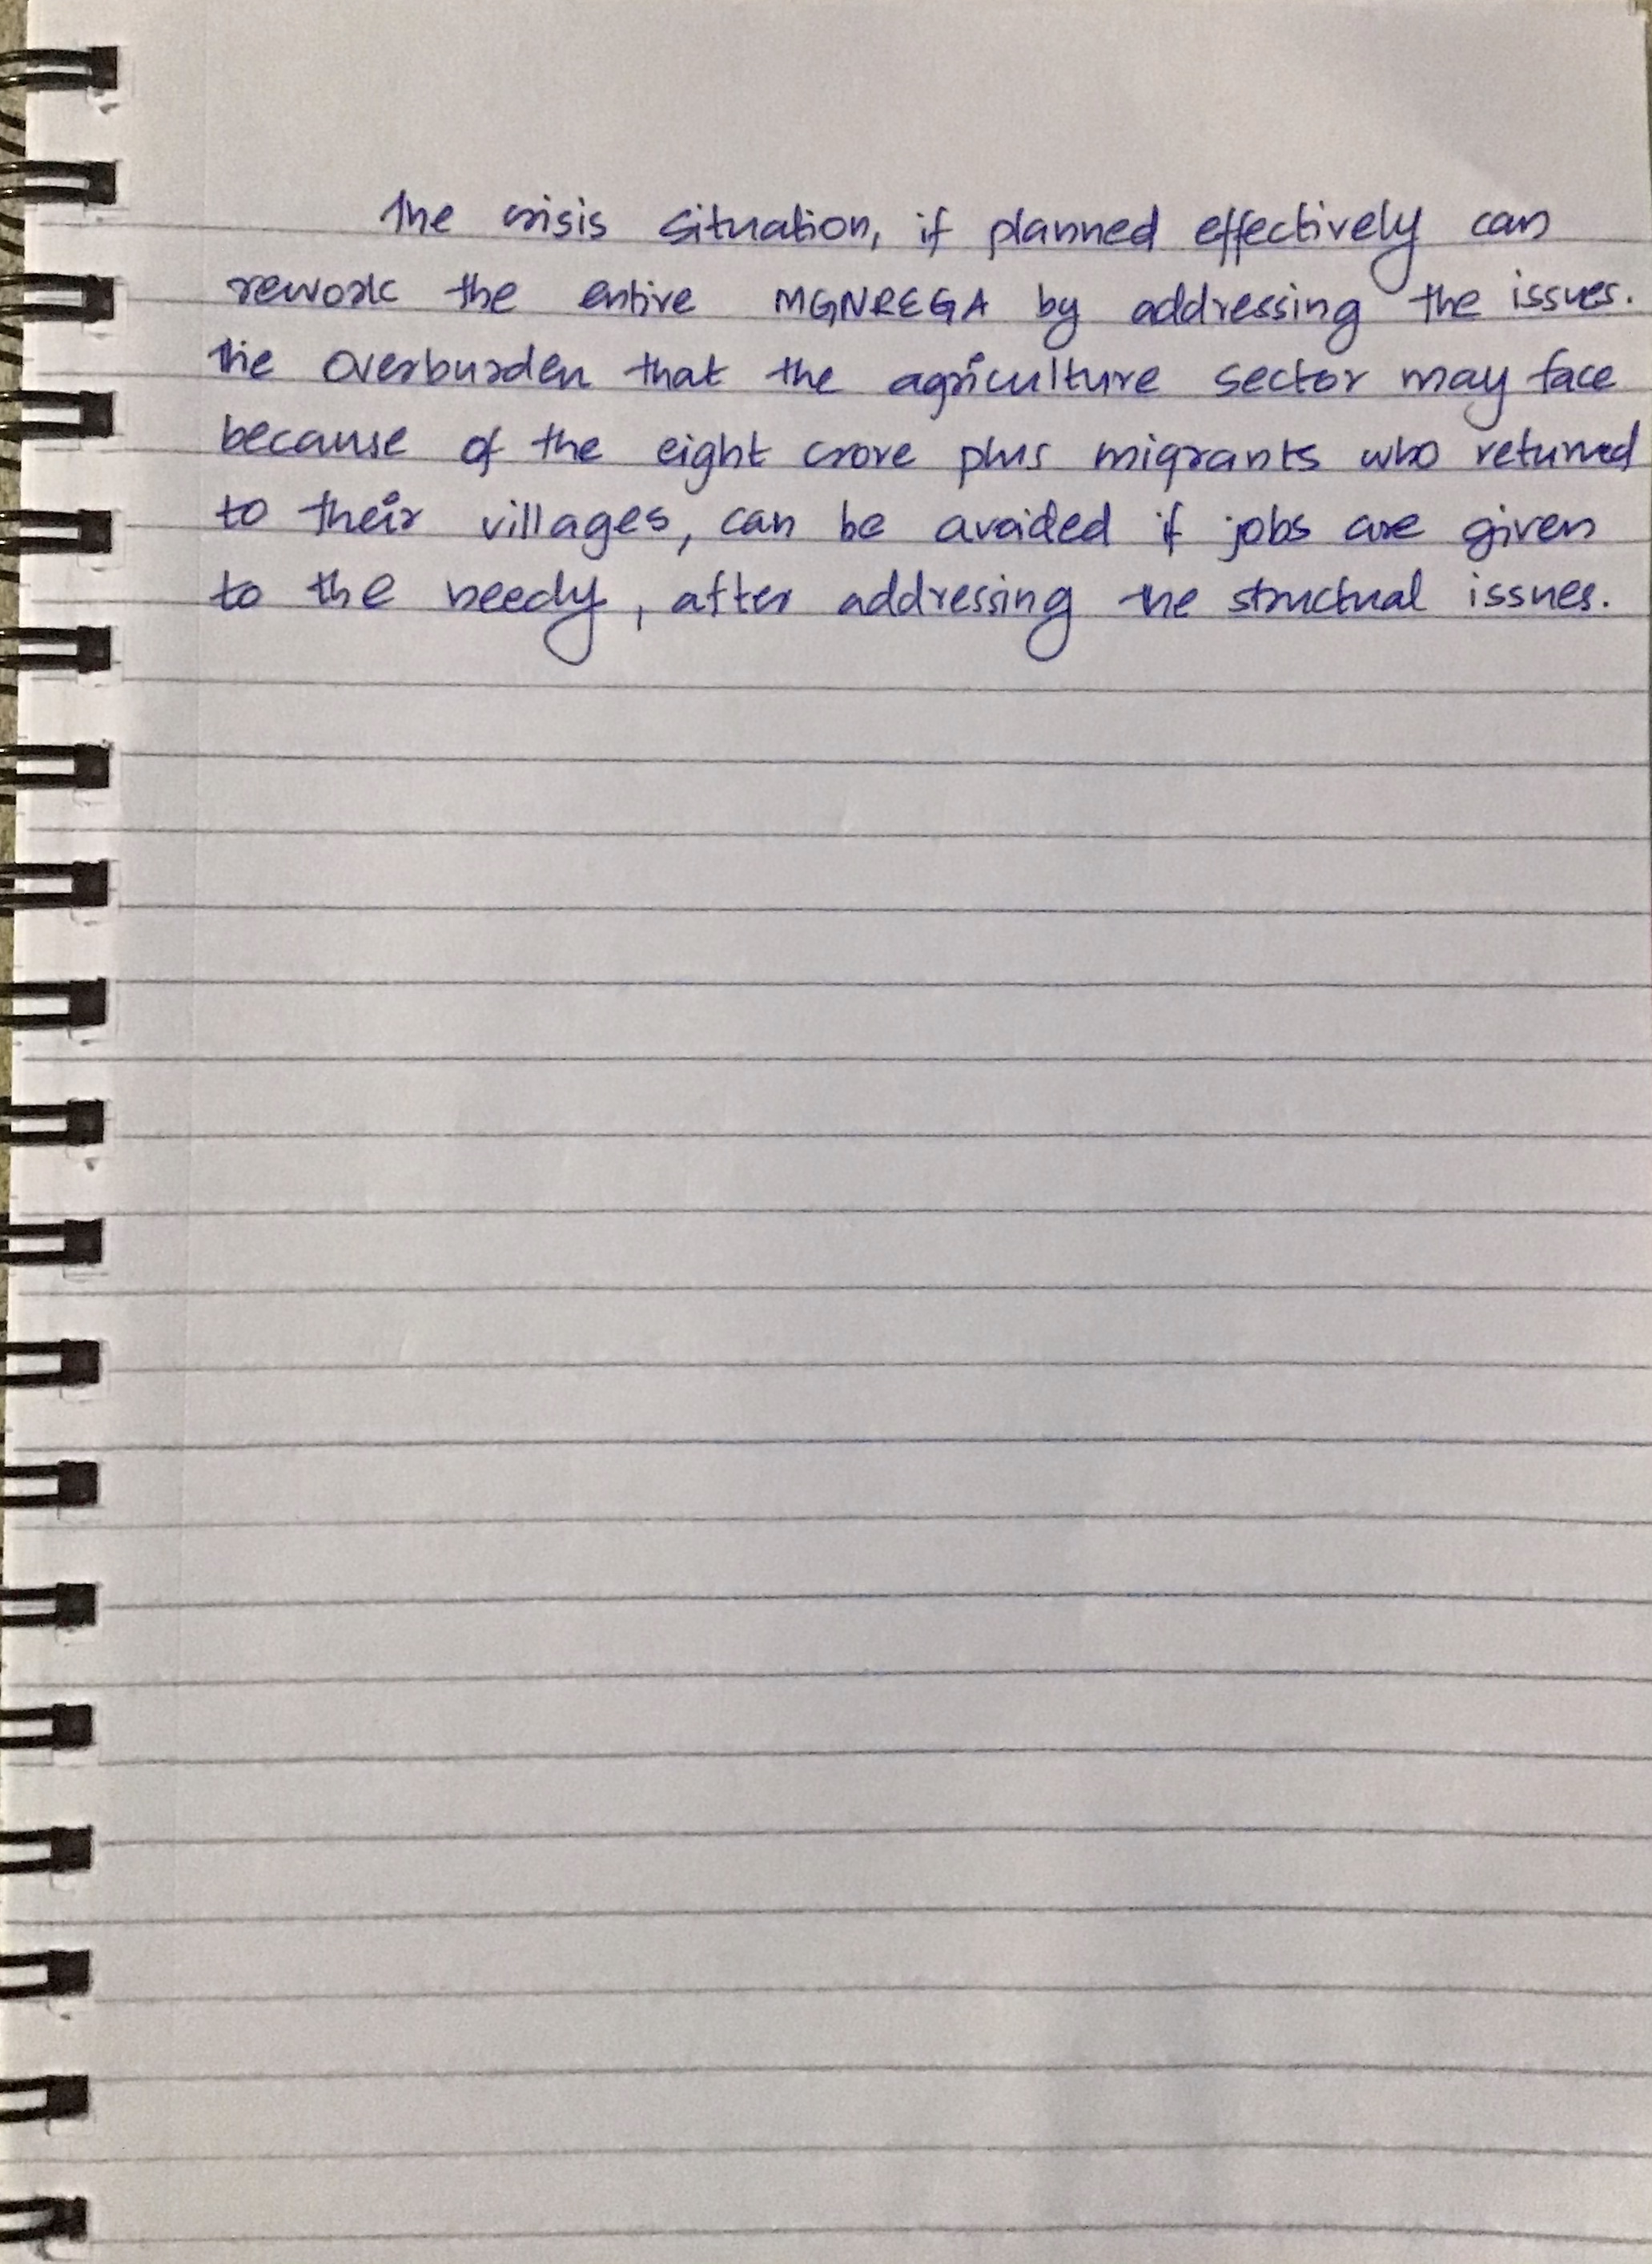 The crisis situation, if planned effectively can
rework the entire MGNREGA by addressing the issues.
The overburden that the agriculture sector may face
because of the eight crore plus migrants who returned
to their villages, can be avoided if jobs are given
to the needy, after addressing the structual issues.